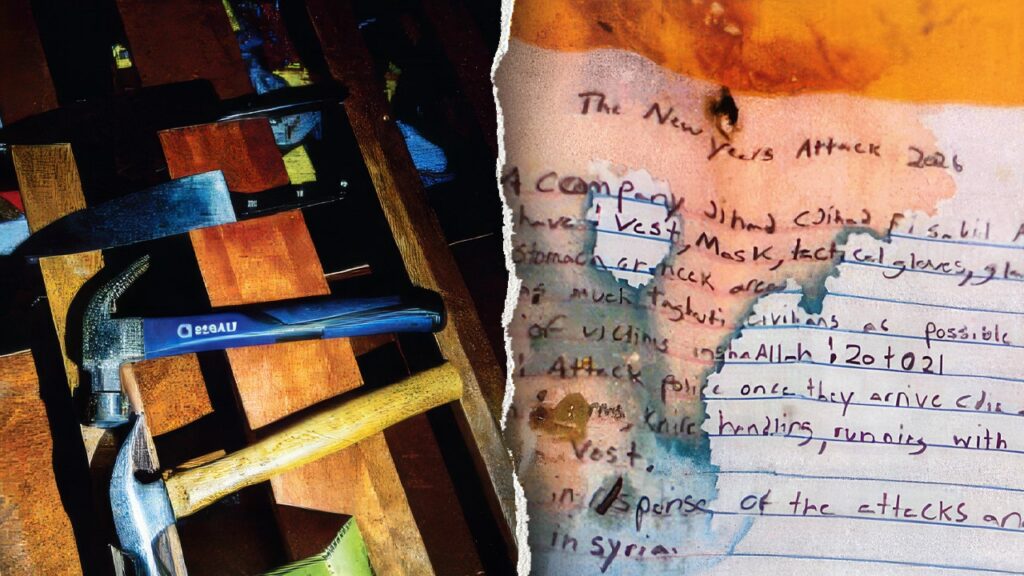 The New Years Attack 2026
A company Jihad (Jihad Fi sabil A
have: Vest, Mask, tactical gloves,
stomach or neck area
much taghuti civilians as possible
of victims inshaAllah: 20 to 21
Attack police once they arrive
Knife handling, running with
Vest.
in response of the attacks
in syria.